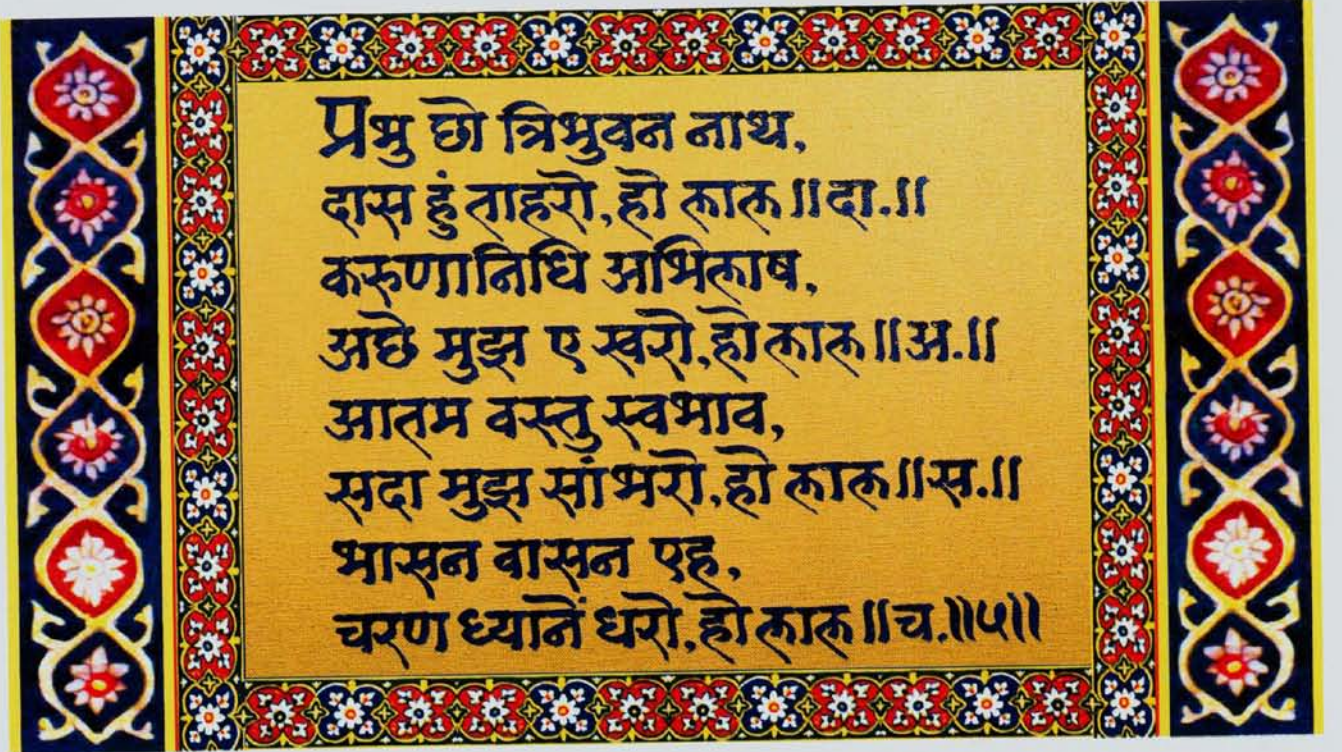 प्रभु छो त्रिभुवन नाथ,
दास हुं ताहरो, हो लाल ॥दा.॥
करुणानिधि अभिलाष,
अछे मुझ ए खरो, हो लाल ॥अ.॥
आतम वस्तु स्वभाव,
सदा मुझ सांभरो, हो लाल ॥स.॥
भासन वासन एह,
चरण ध्याने धरो, हो लाल ॥च.॥५॥